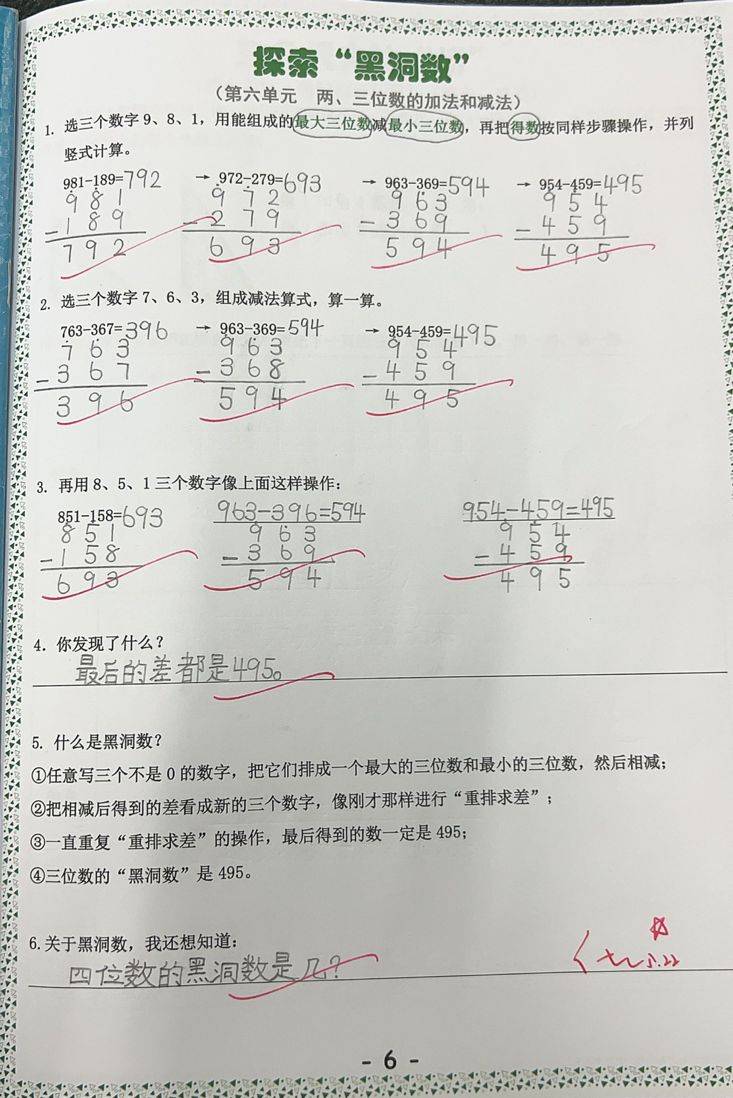 探索“黑洞数”
（第六单元 两、三位数的加法和减法）
1. 选三个数字 9、8、1，用能组成的最大三位数减最小三位数，再把得数按同样步骤操作，并列
竖式计算。
981-189=792 → 972-279=693 → 963-369=594 → 954-459=495
9 8 1 9 7 2 9 6 3 9 5 4
-1 8 9 -2 7 9 -3 6 9 -4 5 9
7 9 2 6 9 3 5 9 4 4 9 5
2. 选三个数字 7、6、3，组成减法算式，算一算。
763-367=396 → 963-369=594 → 954-459=495
7 6 3 9 6 3 9 5 4
-3 6 7 -3 6 8 -4 5 9
3 9 6 5 9 4 4 9 5
3. 再用 8、5、1 三个数字像上面这样操作：
851-158=693 963-396=594 954-459=495
8 5 1 9 6 3 9 5 4
-1 5 8 -3 6 9 -4 5 9
6 9 3 5 9 4 4 9 5
4. 你发现了什么？
最后的差都是495。
5. 什么是黑洞数？
①任意写三个不是 0 的数字，把它们排成一个最大的三位数和最小的三位数，然后相减；
②把相减后得到的差看成新的三个数字，像刚才那样进行“重排求差”；
③一直重复“重排求差”的操作，最后得到的数一定是 495；
④三位数的“黑洞数”是 495。
6.关于黑洞数，我还想知道：
四位数的黑洞数是几？
5.22
- 6 -